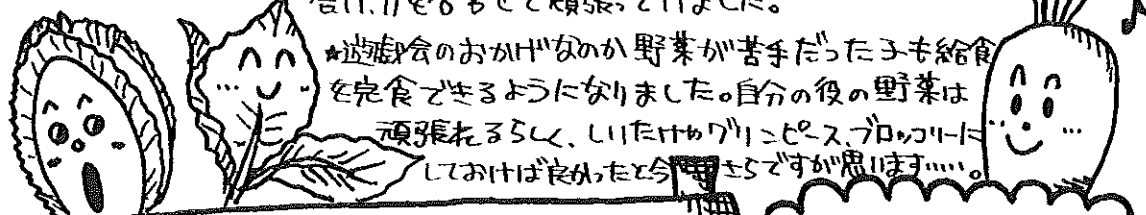 合け、力を合わせて頑張って行けました。
★遊戯会のおかげなのか野菜が苦手だった子も給食
を完食できるようになりました。自分の役の野菜は
頑張れるらしく、しいたけやグリンピース、ブロッコリーに
しておけば良かったと今さらですが思います……。